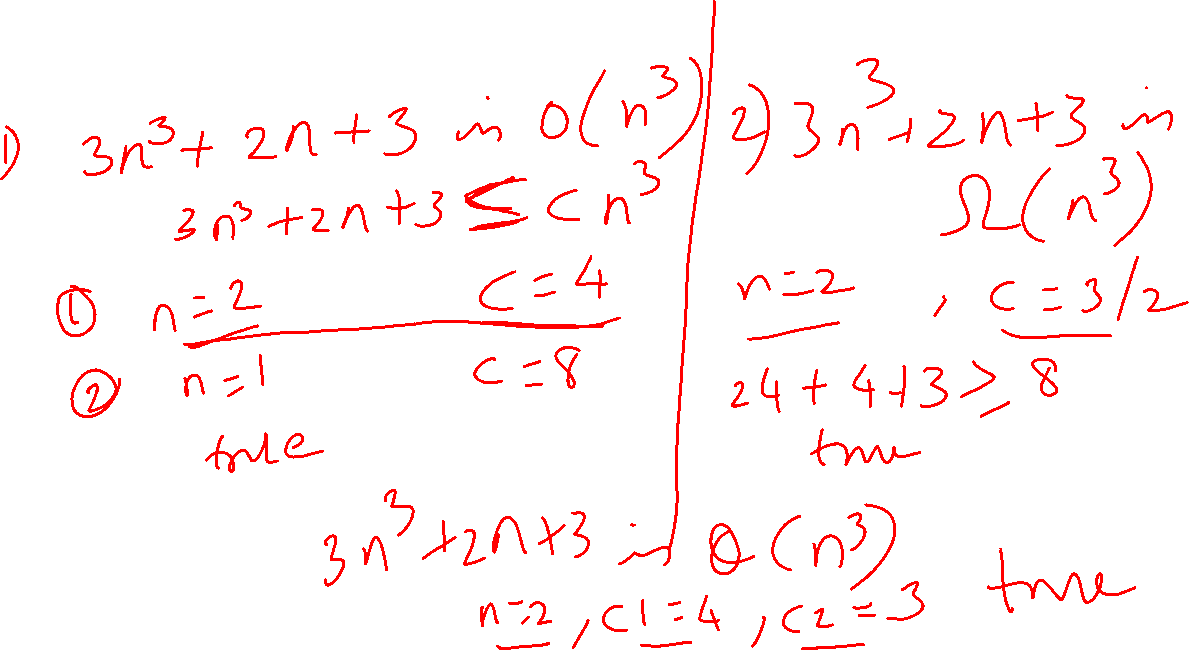 1) 3n³ + 2n + 3 in O(n³)
3n³ + 2n + 3 ≤ c n³
① n = 2 c = 4
② n = 1 c = 8
true
2) 3n³ + 2n + 3 in
Ω(n³)
n = 2 , c = 3/2
24 + 4 + 3 ≥ 8
true
3n³ + 2n + 3 in θ(n³)
n = 2 , c1 = 4 , c2 = 3 true